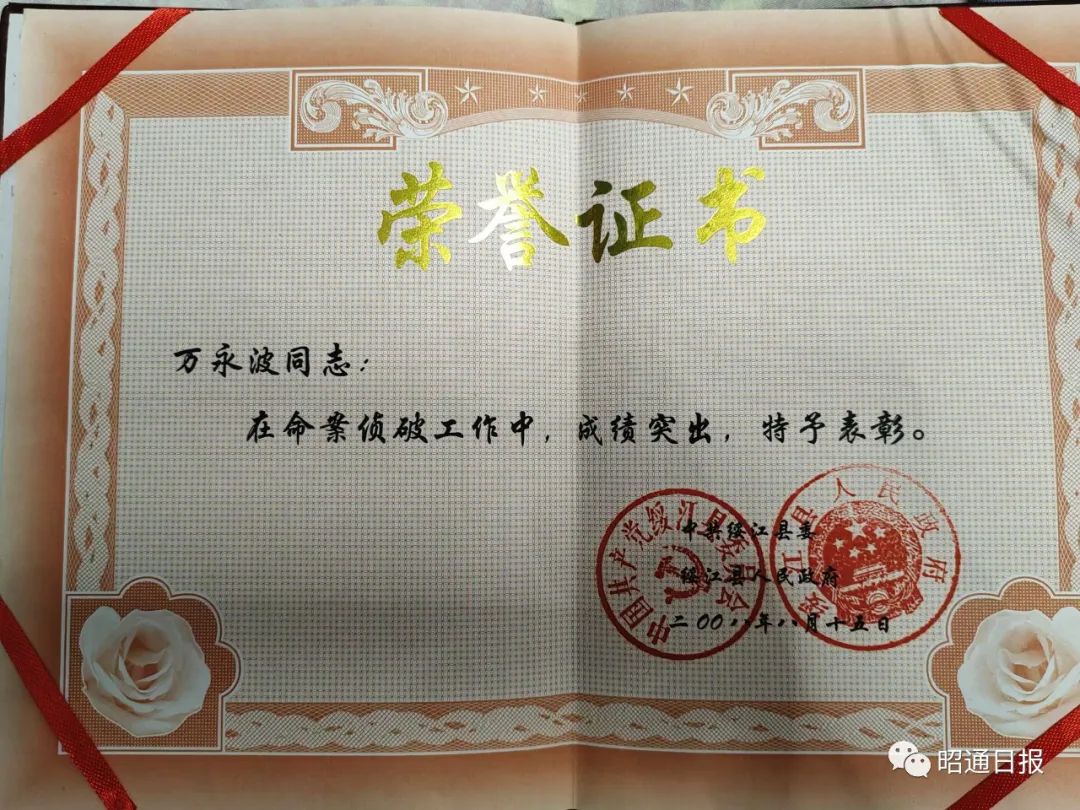 荣誉证书
万永波同志：
在命案侦破工作中，成绩突出，特予表彰。
中共绥江县委
绥江县人民政府
二〇〇八年八月十五日
中国共产党绥江县委员会
绥江县人民政府
昭通日报